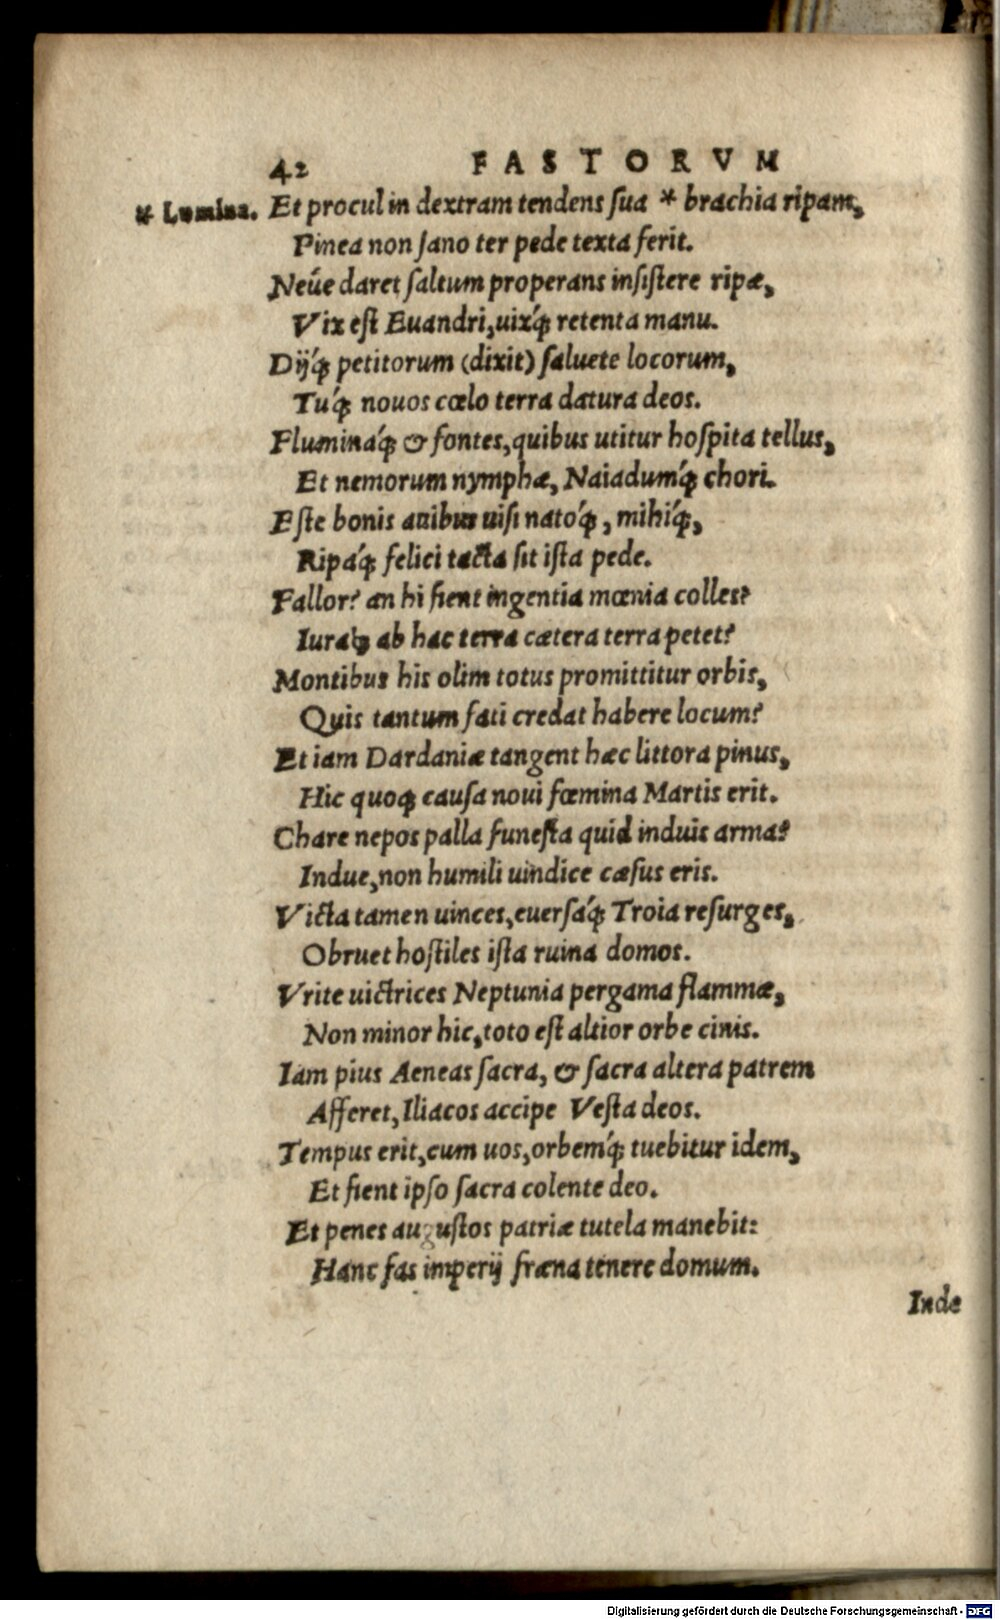 42 FASTORVM
* Lumina. Et procul in dextram tendens ſua * brachia ripam,
Pinea non ſano ter pede texta ferit.
Neúe daret ſaltum properans inſiſtere ripæ,
Vix eſt Euandri, uixq́; retenta manu.
Dijq́; petitorum (dixit) ſaluete locorum,
Tuq́; nouos cœlo terra datura deos.
Fluminaq́; & fontes, quibus utitur hoſpita tellus,
Et nemorum nymphæ, Naiadumq́; chori.
Eſte bonis auibus uiſi natoq́;, mihiq́;,
Ripaq́; felici tacta ſit iſta pede.
Fallor? an hi fient ingentia mœnia colles?
Iuraq; ab hac terra cætera terra petet?
Montibus his olim totus promittitur orbis,
Quis tantum fati credat habere locum?
Et iam Dardaniæ tangent hæc littora pinus,
Hic quoq; cauſa noui fœmina Martis erit.
Chare nepos palla funeſta quid induis arma?
Indue, non humili uindice cæſus eris.
Victa tamen uinces, euerſaq́; Troia reſurges,
Obruet hoſtiles iſta ruina domos.
Vrite uictrices Neptunia pergama flammæ,
Non minor hic, toto eſt altior orbe cinis.
Iam pius Aeneas ſacra, & ſacra altera patrem
Afferet, Iliacos accipe Veſta deos.
Tempus erit, cum uos, orbemq́; tuebitur idem,
Et fient ipſo ſacra colente deo.
Et penes auguſtos patriæ tutela manebit:
Hanc fas imperij fræna tenere domum.
Inde
Digitalisierung gefördert durch die Deutsche Forschungsgemeinschaft - DFG